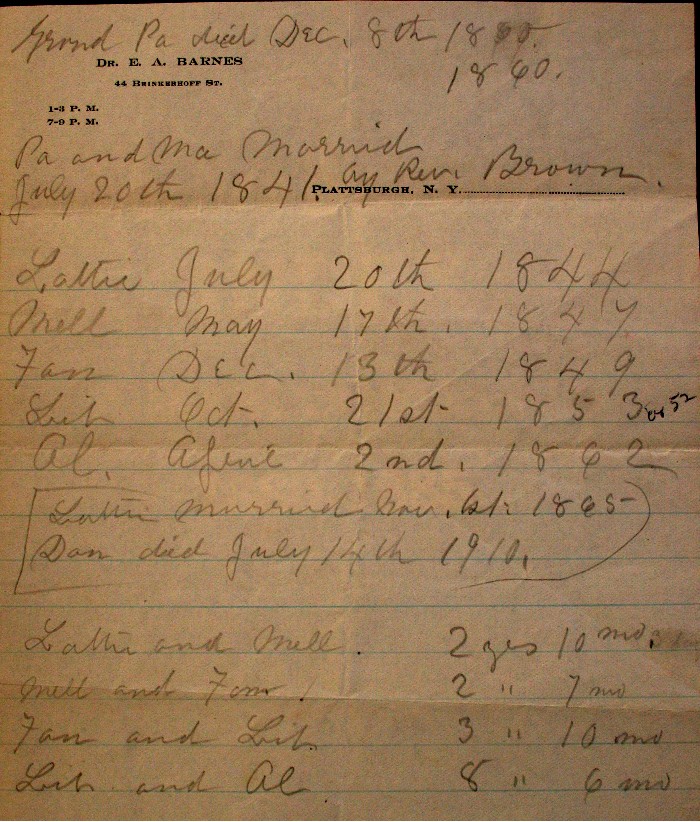 Grand Pa died Dec. 8th 1860.
1860.
DR. E. A. BARNES
44 BRINKERHOFF ST.
1-3 P. M.
7-9 P. M.
Pa and Ma Married
July 20th 1841. by Rev. Brown.
PLATTSBURGH, N. Y.
Lottie July 20th 1844
Mell May 17th. 1847
Fan Dec. 13th 1849
Lib Oct. 21st 1853 or 52
Al. April 2nd. 1862
Lottie married Nov. 1st 1865
Dan died July 14th 1910.
Lottie and Mell. 2 yrs 10 mo.
Mell and Fan. 2 " 7 mo
Fan and Lib 3 " 10 mo
Lib. and Al 8 " 6 mo